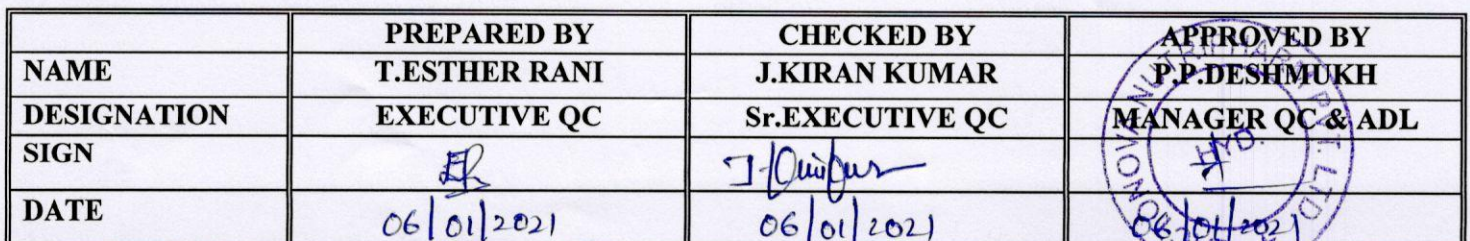 PREPARED BY CHECKED BY APPROVED BY
NAME T.ESTHER RANI J.KIRAN KUMAR P.P.DESHMUKH
DESIGNATION EXECUTIVE QC Sr.EXECUTIVE QC MANAGER QC & ADL
SIGN
DATE 06/01/2021 06/01/2021 06/01/2021
HYD.